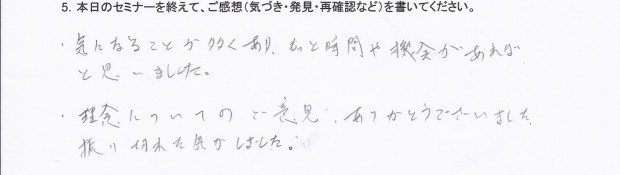 5. 本日のセミナーを終えて、ご感想（気づき・発見・再確認など）を書いてください。
・気になることが多くあり、もっと時間や機会があれば
と思いました。
・理念についてのご意見、ありがとうございました
振り切れた気がしました。